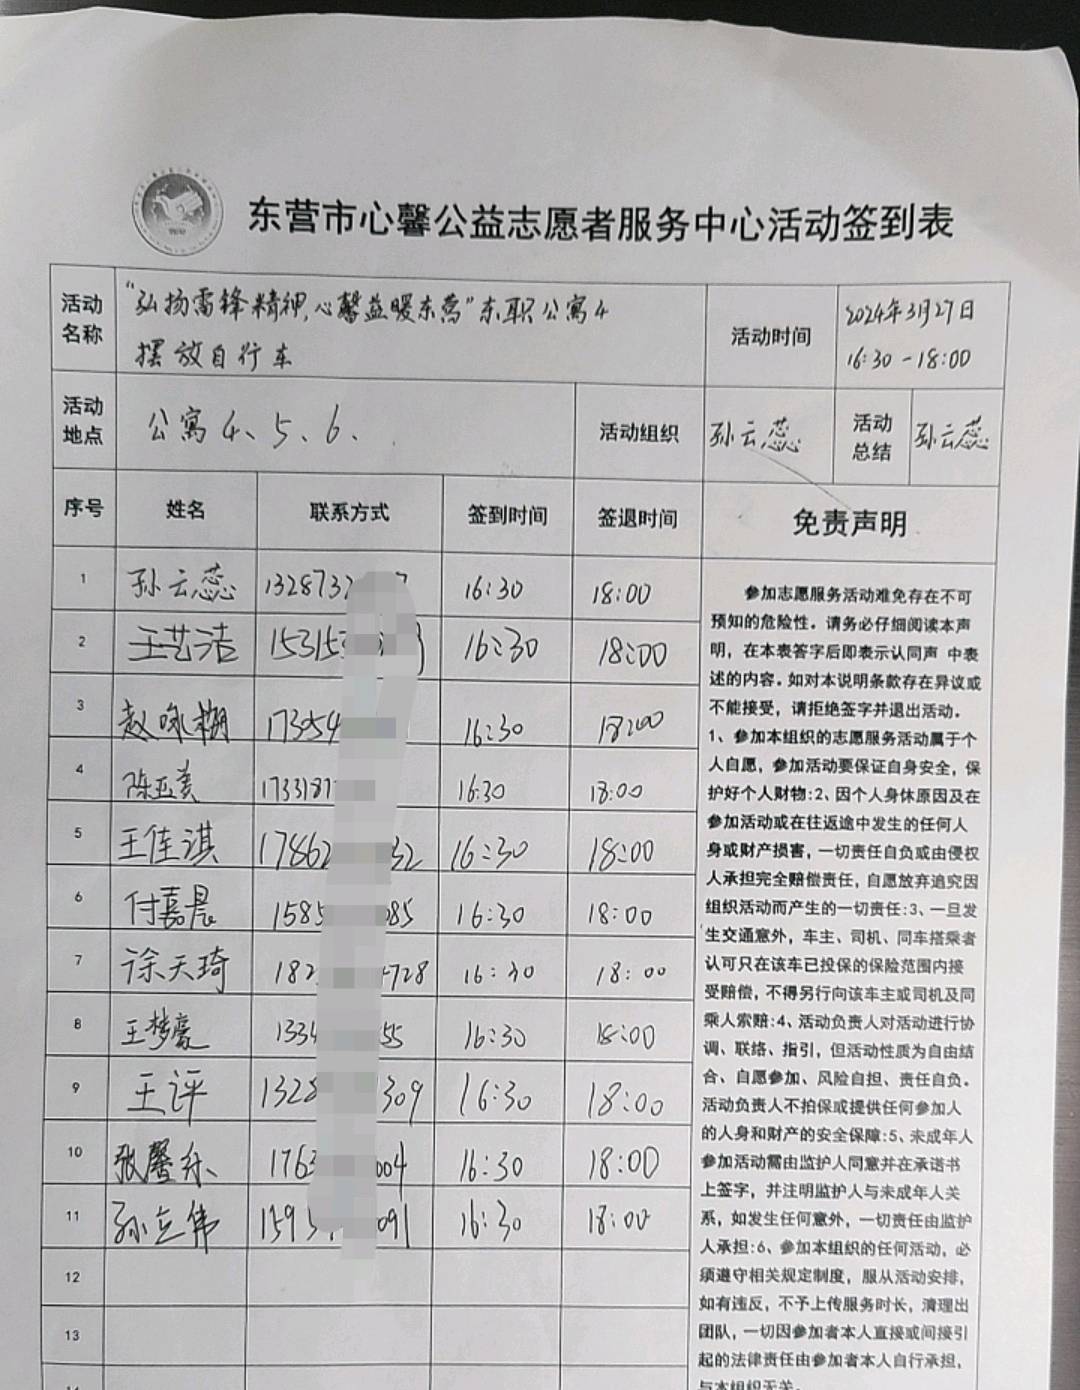 东营市心馨公益志愿者服务中心活动签到表
活动名称
"弘扬雷锋精神,心馨益暖东营"东职公寓4
摆放自行车
活动时间
2024年3月27日
16:30-18:00
活动地点
公寓4、5、6、
活动组织
孙云蕊
活动总结
孙云蕊
序号 姓名 联系方式 签到时间 签退时间 免责声明
1 孙云蕊 1328732 7 16:30 18:00
2 王艺洁 15315 16:30 18:00
3 赵咏 17354 16:30 18:00
4 陈亚美 1733187 16:30 18:00
5 王佳淇 17862 32 16:30 18:00
6 付嘉晨 1585 085 16:30 18:00
7 徐天琦 182 4728 16:30 18:00
8 王梦豪 1334 55 16:30 18:00
9 王评 1328 309 16:30 18:00
10 张馨 1763 004 16:30 18:00
11 孙立伟 1595 091 16:30 18:00
12
13
参加志愿服务活动难免存在不可
预知的危险性。请务必仔细阅读本声
明，在本表答字后即表示认同声 中表
述的内容。如对本说明条款存在异议或
不能接受，请拒绝签字并退出活动。
1、参加本组织的志愿服务活动属于个
人自愿，参加活动要保证自身安全，保
护好个人财物:2、因个人身休原因及在
参加活动或在往返途中发生的任何人
身或财产损害，一切责任自负或由侵权
人承担完全赔偿责任，自愿放弃追究因
组织活动而产生的一切责任:3、一旦发
生交通意外，车主、司机、同车搭乘者
认可只在该车已投保的保险范围内接
受赔偿，不得另行向该车主或司机及同
乘人索赔:4、活动负责人对活动进行协
调、联络、指引，但活动性质为自由结
合、自愿参加、风险自担、责任自负。
活动负责人不拍保或提供任何参加人
的人身和财产的安全保障:5、未成年人
参加活动需由监护人同意并在承诺书
上签字，并注明监护人与未成年人关
系，如发生任何意外，一切责任由监护
人承担:6、参加本组织的任何活动，必
须遵守相关规定制度，服从活动安排，
如有违反，不予上传服务时长，清理出
团队，一切因参加者本人直接或间接引
起的法律责任由参加者本人自行承担，
与本组织无关。